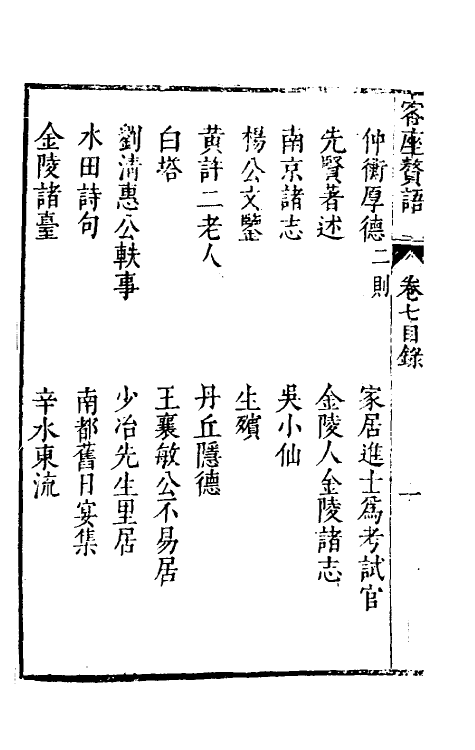 客座贅語
卷七目錄
一
仲衡厚德二則
家居進士爲考試官
先賢著述
金陵人金陵諸志
南京諸志
吳小仙
楊公文鑒
生殯
黃許二老人
丹丘隱德
白塔
王襄敏公不易居
劉清惠公軼事
少冶先生里居
水田詩句
南都舊日宴集
金陵諸臺
辛水東流